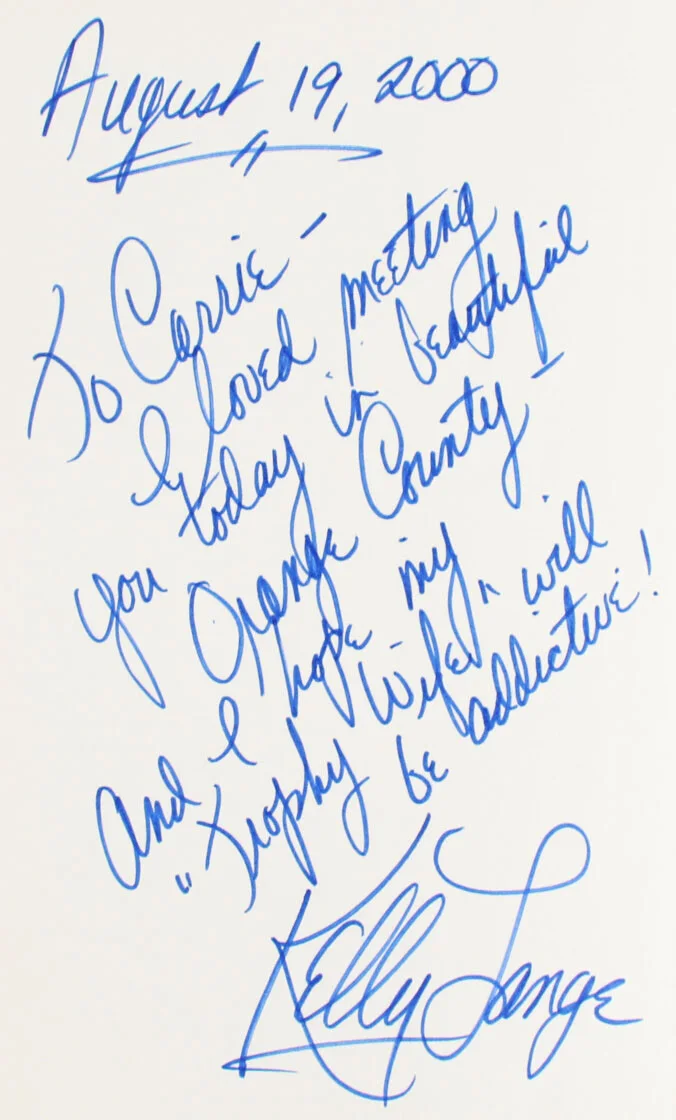 August 19, 2000
To Carrie –
I loved meeting
you today in beautiful
Orange County –
and I hope my
"Trophy Wife" will
be addictive!
Kelly Lange